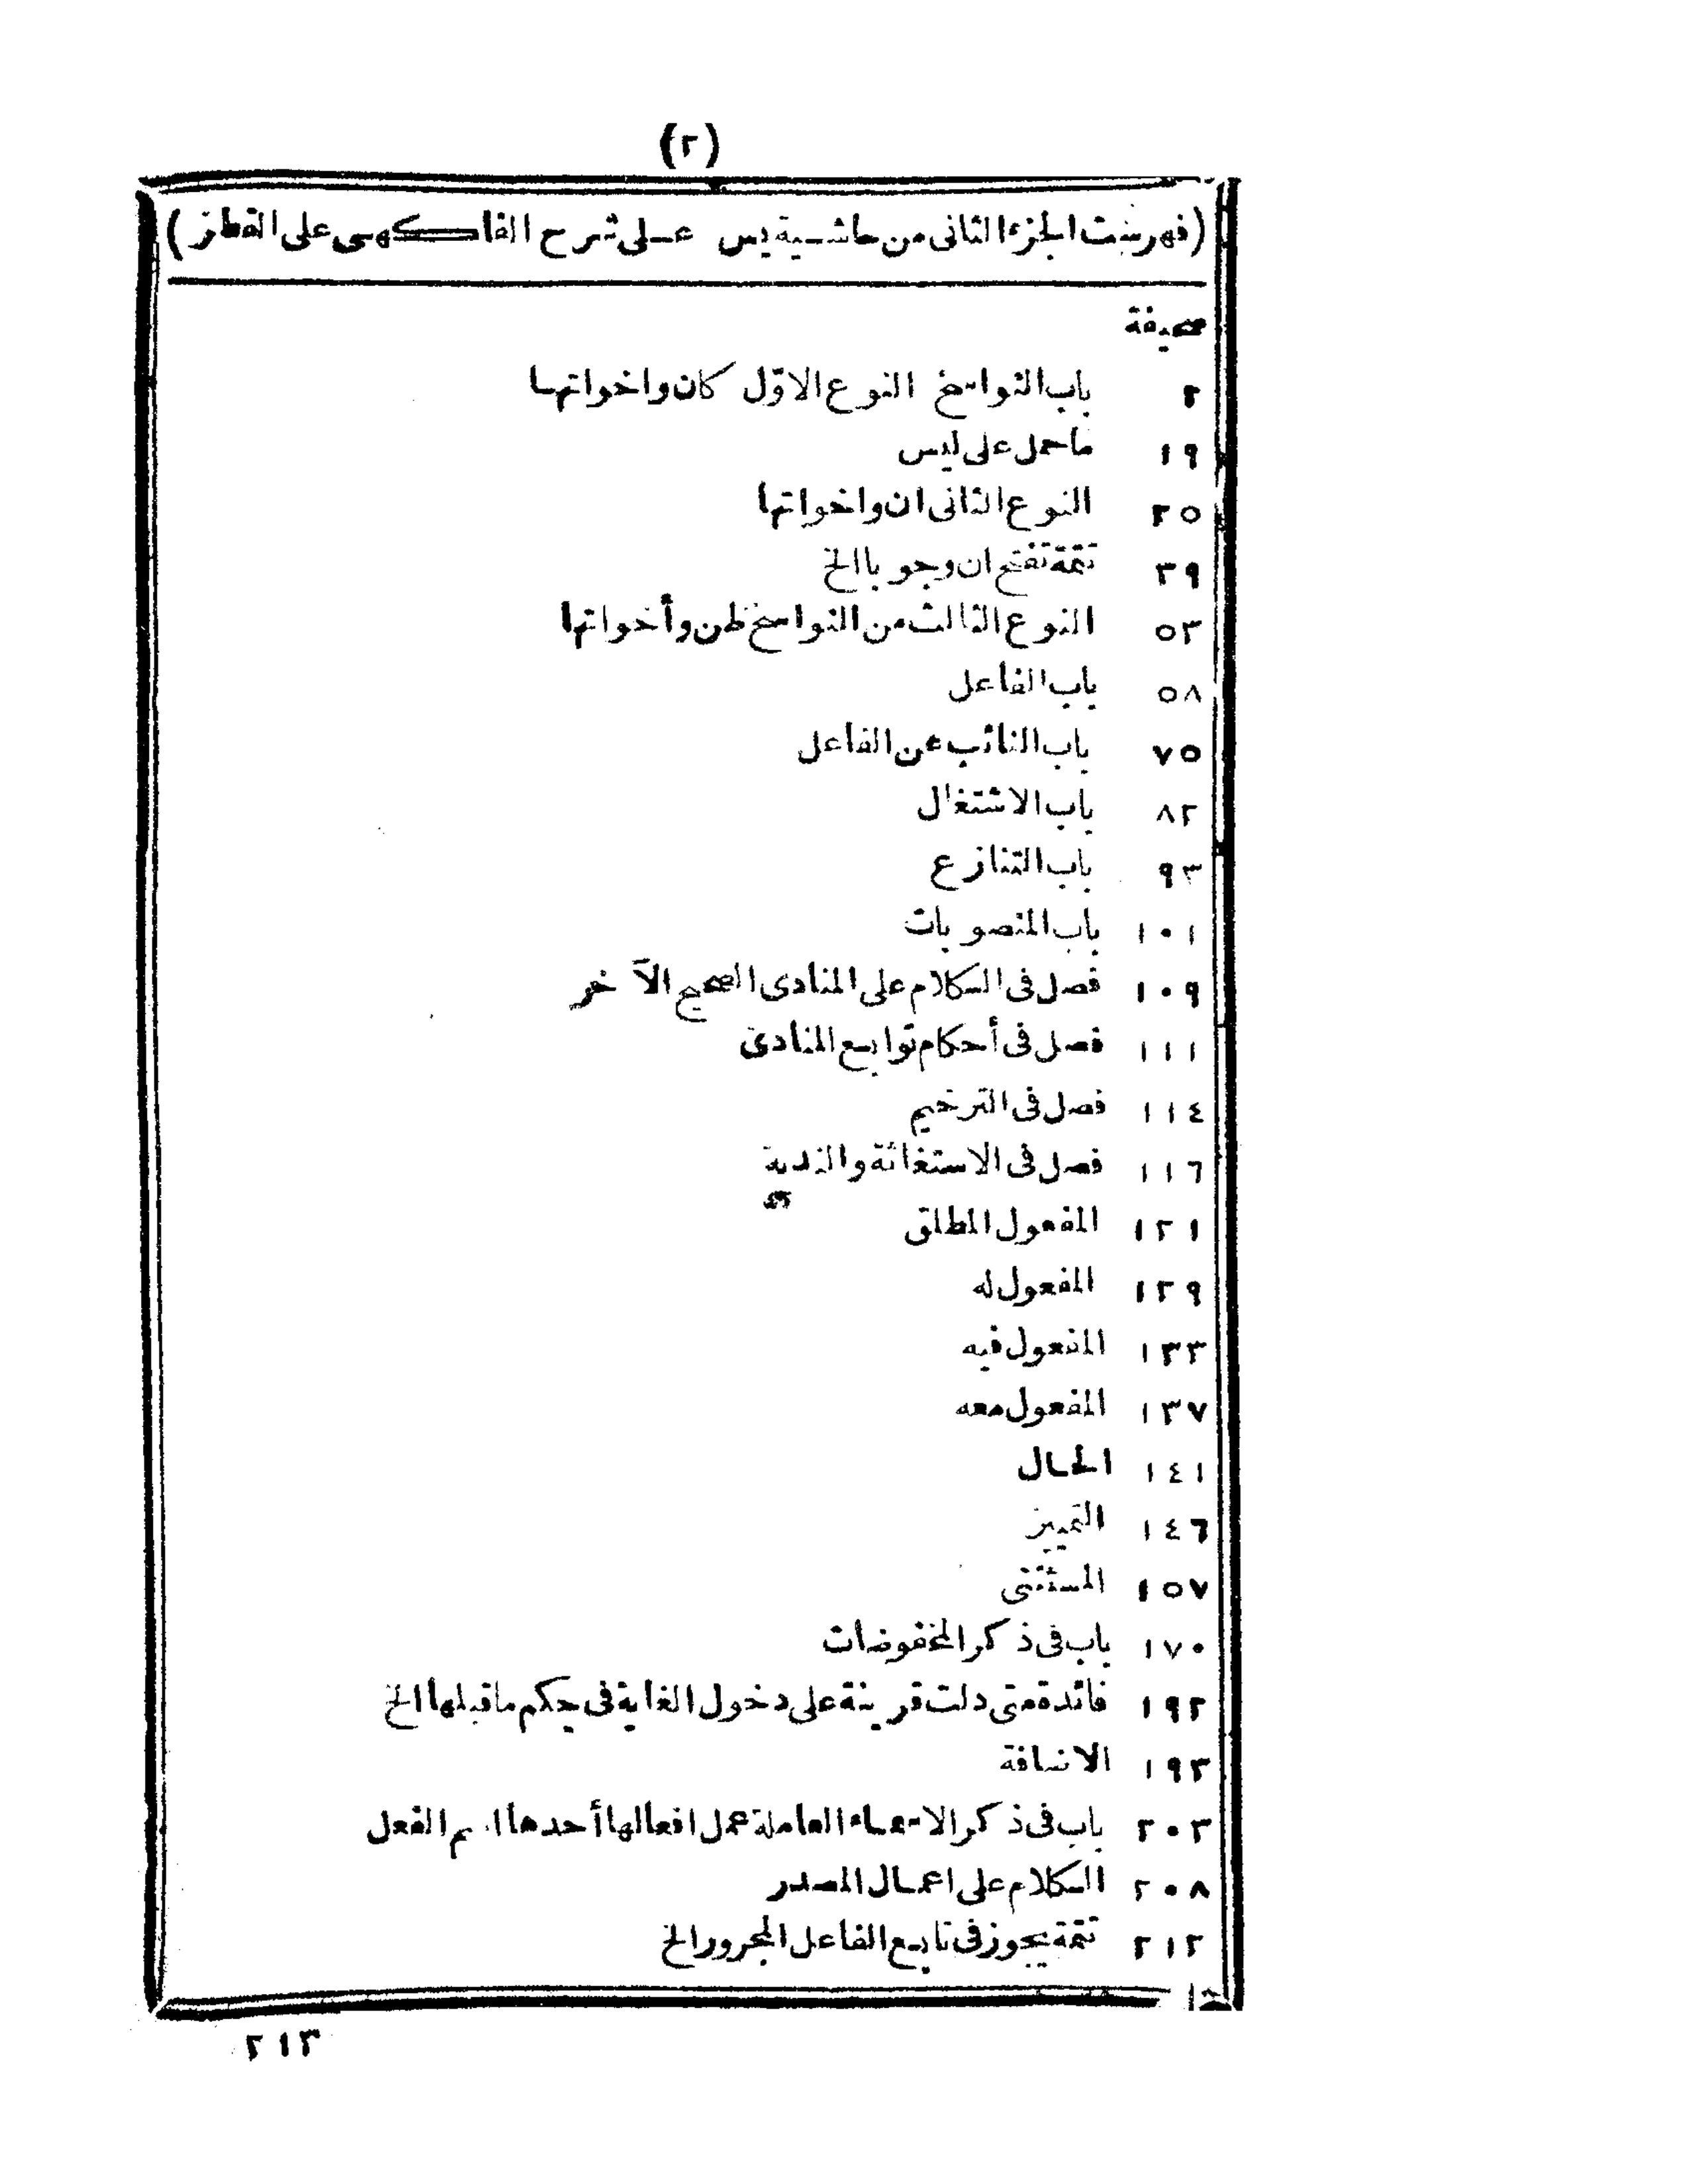 (٢)
(فهرست الجزء الثانى من حاشية يس على شرح الفاكهى على القطر)
صحيفة
٢ باب النواسخ النوع الاوّل كان واخواتها
١٩ ما حمل على ليس
٢٥ النوع الثانى ان واخواتها
٣٩ تتمة تفتح ان وجوبا الخ
٥٣ النوع الثالث من النواسخ ظن وأخواتها
٥٨ باب الفاعل
٧٥ باب النائب عن الفاعل
٨٢ باب الاشتغال
٩٣ باب التنازع
١٠١ باب المنصوبات
١٠٩ فصل فى الكلام على المنادى الصحيح الآخر
١١١ فصل فى أحكام توابع المنادى
١١٤ فصل فى الترخيم
١١٦ فصل فى الاستغاثة والندبة
١٢١ المفعول المطلق
١٢٩ المفعول له
١٣٣ المفعول فيه
١٣٧ المفعول معه
١٤١ الحال
١٤٦ التمييز
١٥٧ المستثنى
١٧٠ باب فى ذكر المخفوضات
١٩٢ فائدة متى دلت قرينة على دخول الغاية فى حكم ما قبلها الخ
١٩٣ الاضافة
٢٠٣ باب فى ذكر الاسماء العاملة عمل افعالها أحدها اسم الفعل
٢٠٨ الكلام على اعمال المصدر
٢١٢ تتمة يجوز فى تابع الفاعل المجرور الخ
٢١٣